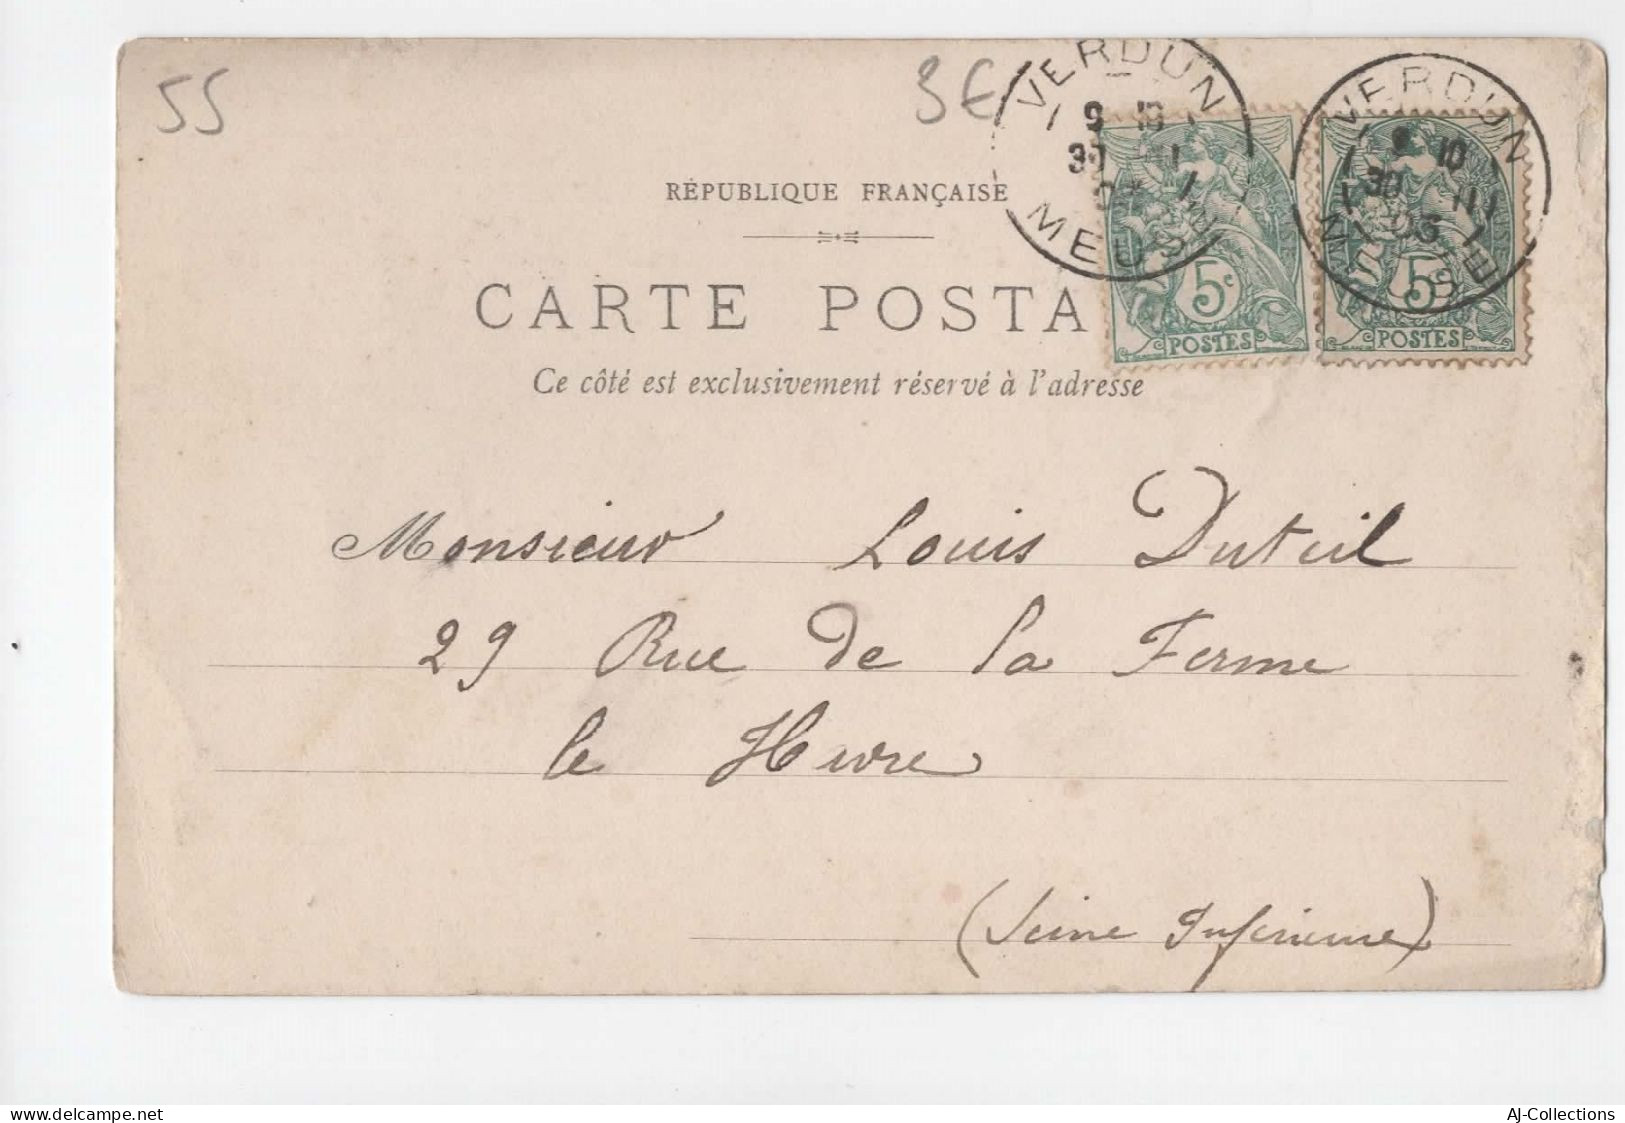 55
3€
VERDUN
9 10
30
MEUSE
VERDUN
10
30 11
03
MEUSE
RÉPUBLIQUE FRANÇAISE
CARTE POSTA
5c
POSTES
5c
POSTES
Ce côté est exclusivement réservé à l'adresse
Monsieur Louis Duteil
29 Rue de la Ferme
le Havre
(Seine Inférieure)
delcampe.net
AJ-Collections